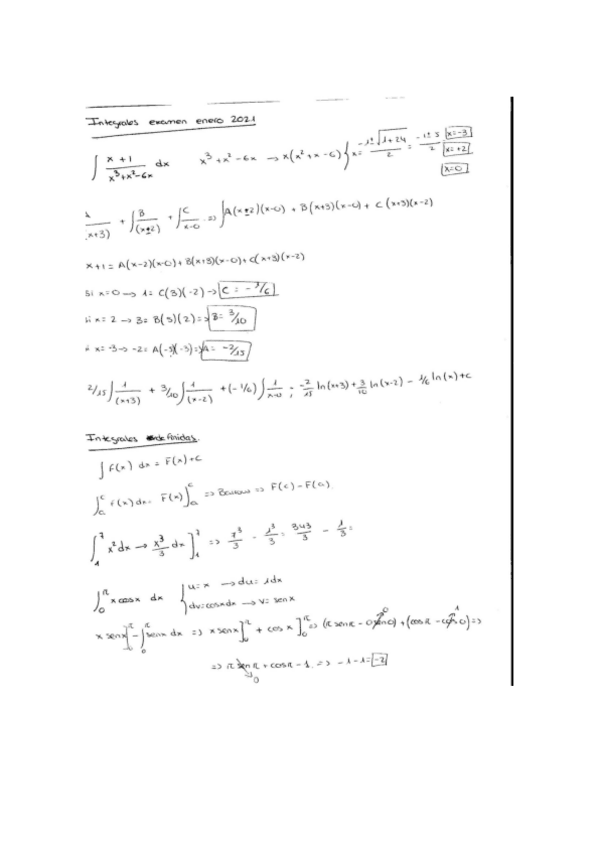 Integrales examen enero 2021
∫ x+1 / x³+x²-6x dx   x³+x²-6x → x(x²+x-6) { x= -1±√1+24 / 2 = -1±5 / 2  x=-3  x=+2  x=0
/ (x+3) + ∫ B/(x-2) + ∫ C/x-0 => ∫ A(x-2)(x-0) + B(x+3)(x-0) + C(x+3)(x-2)
x+1 = A(x-2)(x-0) + B(x+3)(x-0) + C(x+3)(x-2)
Si x=0 → 1= C(3)(-2) → C = -1/6
si x= 2 → 3= B(5)(2) => B= 3/10
x=-3 → -2= A(-5)(-3) => A= -2/15
2/15 ∫ 1/(x+3) + 3/10 ∫ 1/(x-2) + (-1/6) ∫ 1/x-0 ; -2/15 ln(x+3) + 3/10 ln(x-2) - 1/6 ln(x)+c
Integrales definidas.
∫ f(x) dx = F(x)+c
f(x) dx = F(x)] => Barrow => F(c) - F(a)
∫₁⁷ x² dx → x³/3 dx ]₁⁷ => 7³/3 - 1³/3 = 343/3 - 1/3 =
∫₀^π x cosx dx { u=x → du= 1dx
dv=cosxdx → v= senx
x senx]₀^π - ∫₀^π senx dx => x senx]₀^π + cos x]₀^π => (π senπ - 0 sen0) + (cosπ - cos0) =>
=> π senπ + cosπ - 1 => -1-1= -2
0